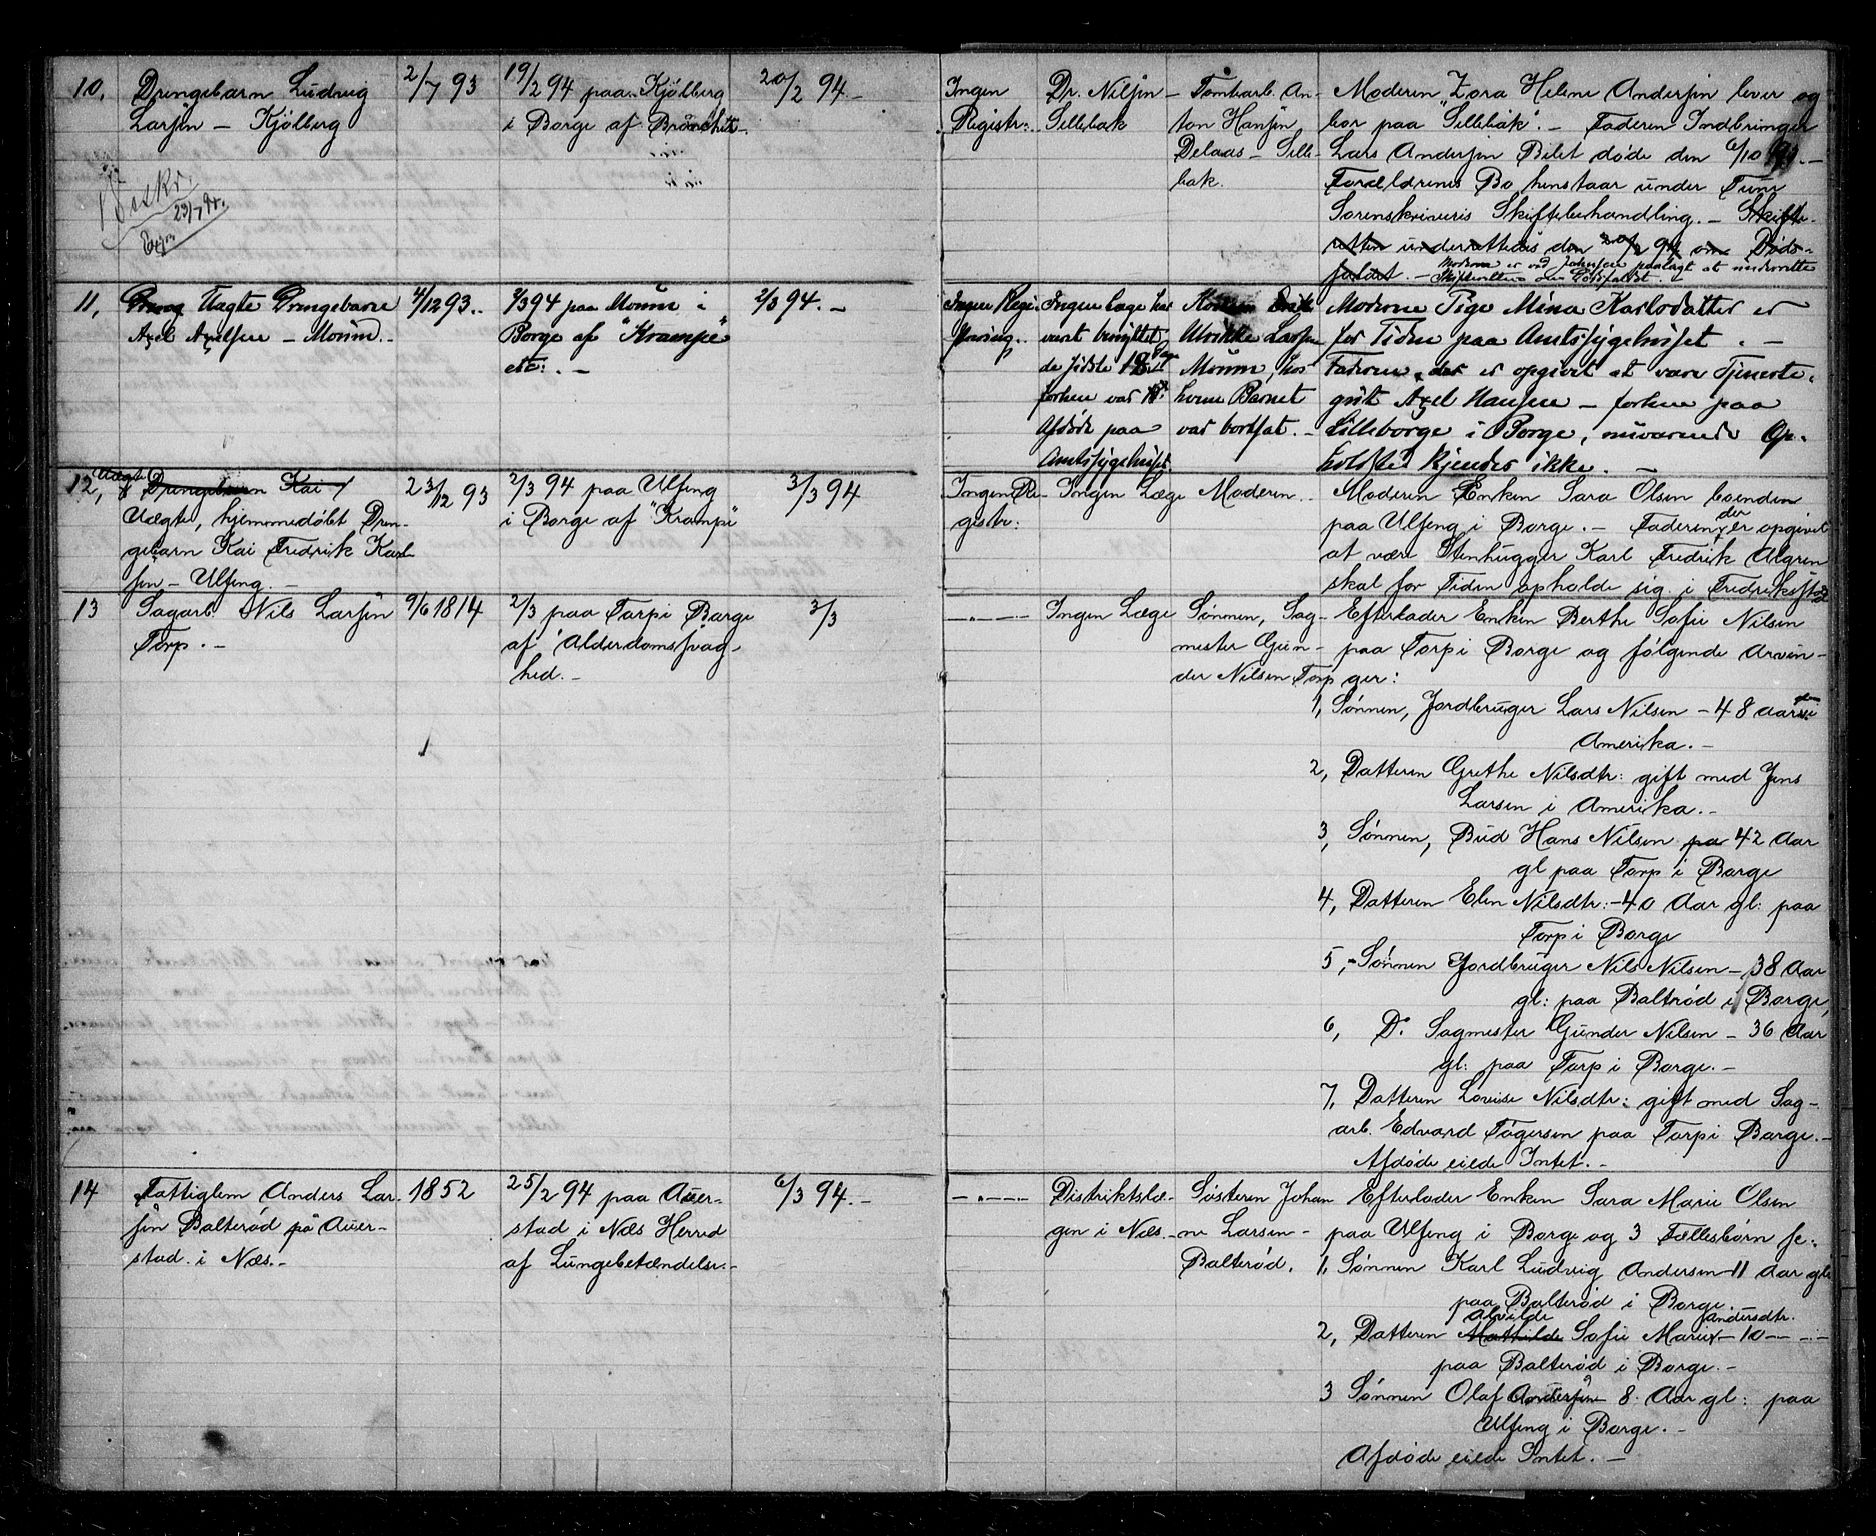 10,
Drengebarn Ludvig
Larsen — Kjølberg
2/7 93
19/2 94 paa Kjølberg
i Borge af Bronchit
20/2 94.—
Ingen
Registr:
Dr. Nilsen
Sellebak
Tomtearb. An-
ton Hansen
Delaas — Selle-
bak.
Moderen Zora Helene Andersen lever og
bor paa "Sellebak". — Faderen Indbringer
Lars Andersen Bilet døde den 6/10 93.—
Forældrenes Bo henstaar under Tune
Sorenskriveris Skiftebehandling. — Skifte-
retten underrettedes den 20/2 94 om Døds-
faldet. —
Moderen er ved Johansen paalagt at underrette
Skifteretten om Dødsfaldet.
Beskr.
23/7 94.
11,
Uægte Drengebarn
Axel Axelsen — Moum.
4/12 93.
2/3 94 paa Moum i
Borge af "Krampe"
etc. —
2/3 94. —
Ingen Regi-
strering.
Ingen Læge har
været benyttet
de sidste 18 Dage
forhen var
Afdøde paa
Amtssygehuset
Ulrikke Larsen
Moum, hos
hvem Barnet
var bortsat. —
Moderen Pige Mina Karlsdatter er
for Tiden paa Amtssygehuset. —
Faderen der er opgivet at være Tjeneste-
gut Axel Hansen — forhen paa
Lilleborge i Borge, nuværende Op-
holdsted kjendes ikke. —
12, Uægte
Drengebarn Kai
Uægte, hjemmedøbt Dren-
gebarn Kai Fredrik Karl-
sen — Ulfeng. —
23/12 93
2/3 94 paa Ulfeng
i Borge af "Krampe"
3/3 94
Ingen Re-
gistr:
Ingen Læge
Moderen
Moderen Enken Sara Olsen boende
paa Ulfeng i Borge. — Faderen der er opgivet
at være Stenhugger Karl Fredrik Algren
skal for Tiden opholde sig i Fredriksstad
13
Sagarb. Nils Larsen
Torp. —
9/6 1814
2/3 paa Torp i Borge
af "Alderdomssvag-
hed. —
3/3
— „ —
Ingen Læge
Sønnen, Sag-
mester Gun-
der Nilsen Torp
Efterlader Enken Berthe Sofie Nilsen
paa Torp i Borge og følgende Arvin-
ger:
1, Sønnen, Jordbruger Lars Nilsen — 48 Aar gl i
Amerika. —
2, Datteren Grethe Nilsdtr: gift med Jens
Larsen i Amerika. —
3, Sønnen, Bud Hans Nilsen paa 42 Aar
gl paa Torp i Borge
4, Datteren Elen Nilsdtr: — 40 Aar gl: paa
Torp i Borge
5, — Sønnen Jordbruger Nils Nilsen — 38 Aar
gl: paa Balterød i Borge,
6, Do. Sagmester Gunder Nilsen — 36 Aar
gl: paa Torp i Borge. —
7, Datteren Lovise Nilsdtr: gift med Sag-
arb. Edvard Tøgersen paa Torp i Borge. —
Afdøde eiede Intet. —
14
Fattiglem Anders Lar-
sen Balterød på Auer-
stad i Næs. —
1852
25/2 94 paa Auer-
stad i Næs Herred
af Lungebetændelse. —
6/3 94. —
— „ —
Distriktslæ-
gen i Næs. —
Søsteren Johan
ne Larsen —
Balterød.
Efterlader Enken Sara Marie Olsen
paa Ulfeng i Borge og 3 Fællesbørn se:
1, Sønnen Karl Ludvig Andersen 11 Aar gl
paa Balterød i Borge.
Alvilde
Andersdtr.
2, Datteren Mathilde Sofie Marie — 10 — „ —
paa Balterød i Borge. —
3 Sønnen Olaf Andersen 8 Aar gl: paa
Ulfeng i Borge. —
Afdøde eiede Intet. —